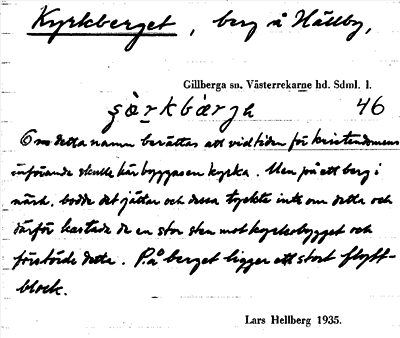 Kyrkberget, berg å Hällby,
Gillberga sn, Västerrekarne hd. Sdml. l.
46
Om detta namn berättas att vid tiden för kristendomens
införande skulle här byggas en kyrka. Men på ett berg i
närh. bodde det jättar och dessa tyckte inte om detta och
därför kastade de en stor sten mot kyrkobygget och
förstörde detta. På berget ligger ett stort flytt-
block.
Lars Hellberg 1935.